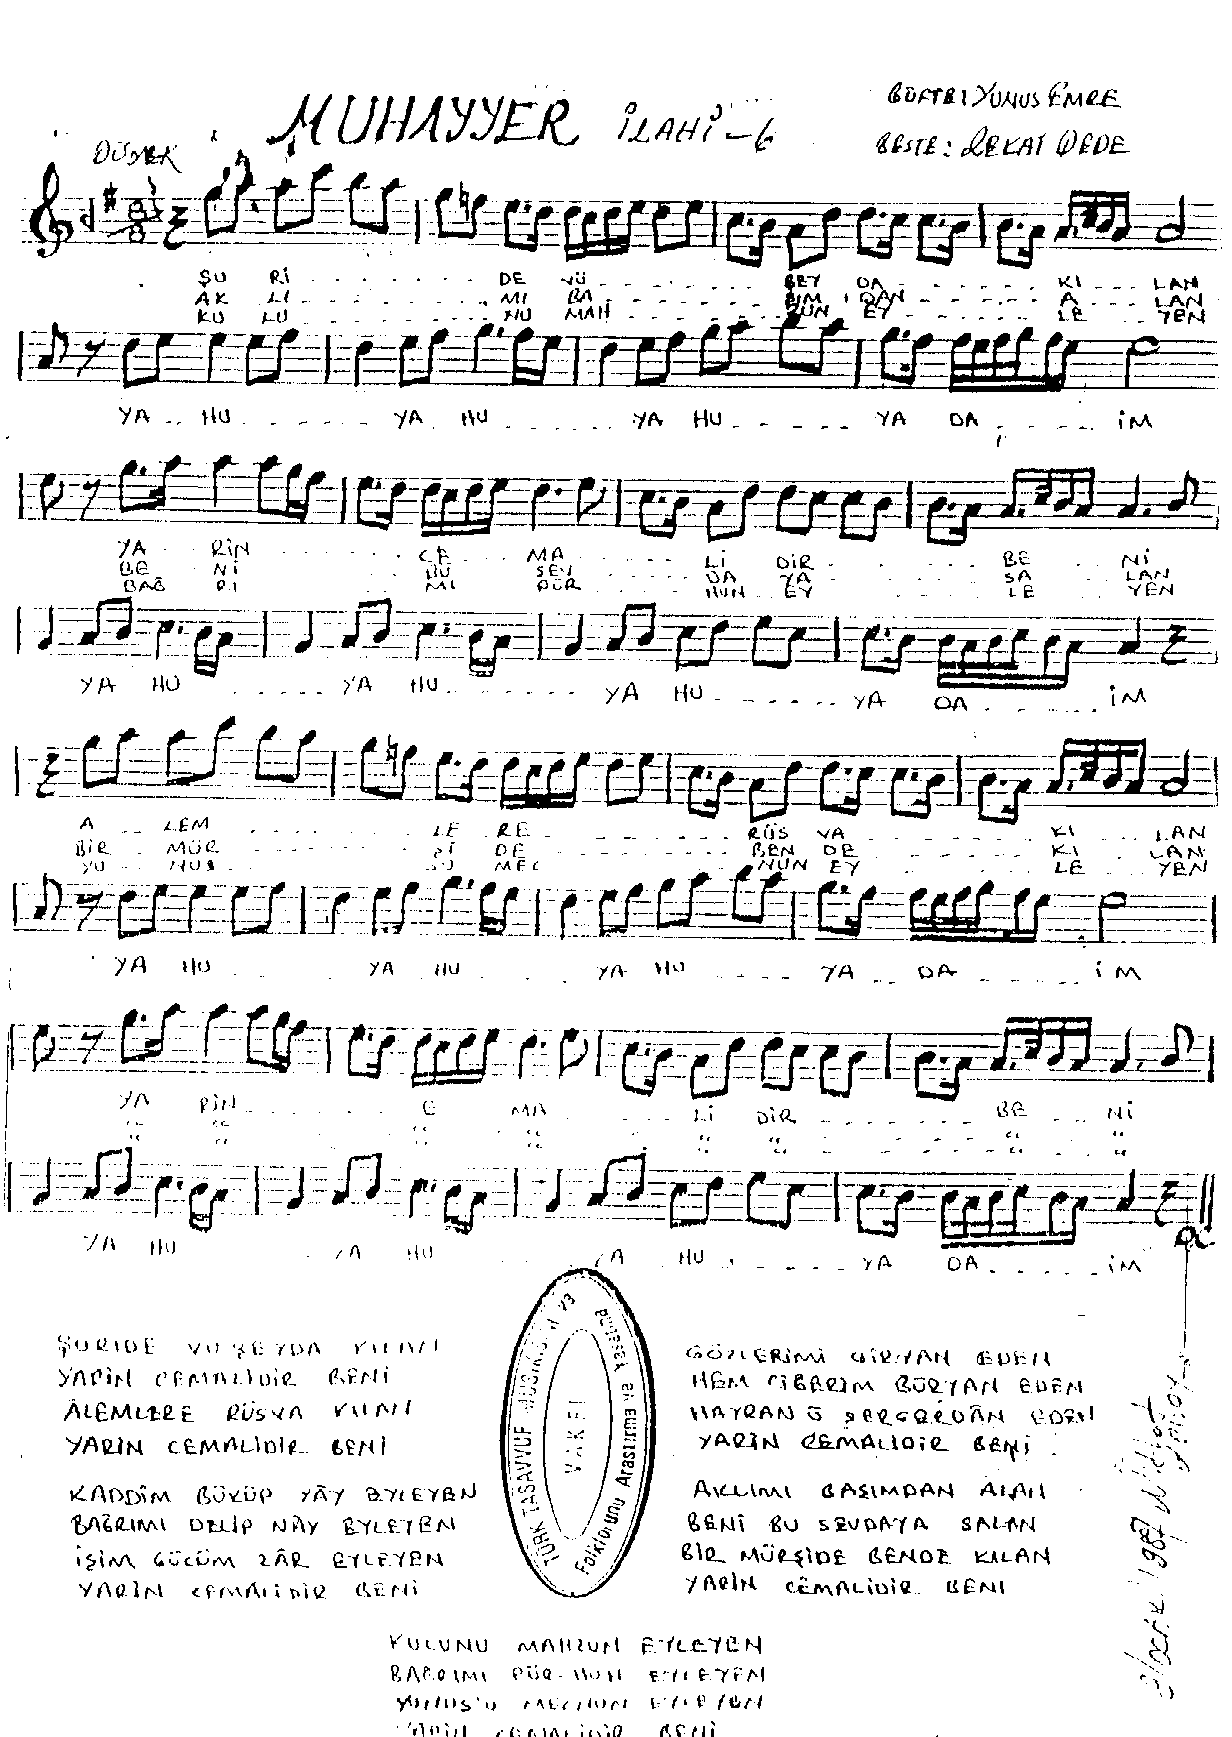 MUHAYYER İLAHİ - 6
GÜFTE: YUNUS EMRE
BESTE: ZEKAİ DEDE
DÜYEK
ŞU Rİ DE VÜ ŞEY DA KI LAN
AK LI MI BA ŞIM DAN A LAN
KU LU NU MAH ZUN EY LE YEN
YA HU YA HU YA HU YA DA İM
YA RİN CE MA Lİ DİR BE Nİ
BE Nİ BU SEV DA YA SA LAN
BAĞ RI MI PÜR HUN EY LE YEN
YA HU YA HU YA HU YA DA İM
A LEM LE RE RÜS VA KI LAN
BİR MÜR Şİ DE BEN DE KI LAN
YU NUS U MEC NUN EY LE YEN
YA HU YA HU YA HU YA DA İM
YA RİN CE MA Lİ DİR BE Nİ
" " " " " " " "
" " " " " " " "
YA HU YA HU YA HU YA DA İM
ŞURIDE VÜ ŞEYDA KILAN
YARİN CEMALİDİR BENİ
ÂLEMLERE RÜSVA KILAN
YARİN CEMALİDİR BENİ
KADDİM BÜKÜP YÂY EYLEYEN
BAĞRIMI DELİP NÂY EYLEYEN
İŞİM GÜCÜM ZÂR EYLEYEN
YARİN CEMALİDİR BENİ
GÖZLERİMİ GİRYAN EDEN
HEM CİĞERİM BÜRYAN EDEN
HAYRAN Ü SERGERDÂN EDEN
YARİN CEMALİDİR BENİ
AKLIMI BAŞIMDAN ALAN
BENİ BU SEVDAYA SALAN
BİR MÜRŞİDE BENDE KILAN
YARİN CEMALİDİR BENİ
KULUNU MAHZUN EYLEYEN
BAĞRIMI PÜR-HUN EYLEYEN
YUNUS'U MECNUN EYLEYEN
YARİN CEMALİDİR BENİ
TÜRK TASAVVUF MUSİKİSİ VE
Folklorunu Araştırma ve Yaşatma
VAKFI
1987